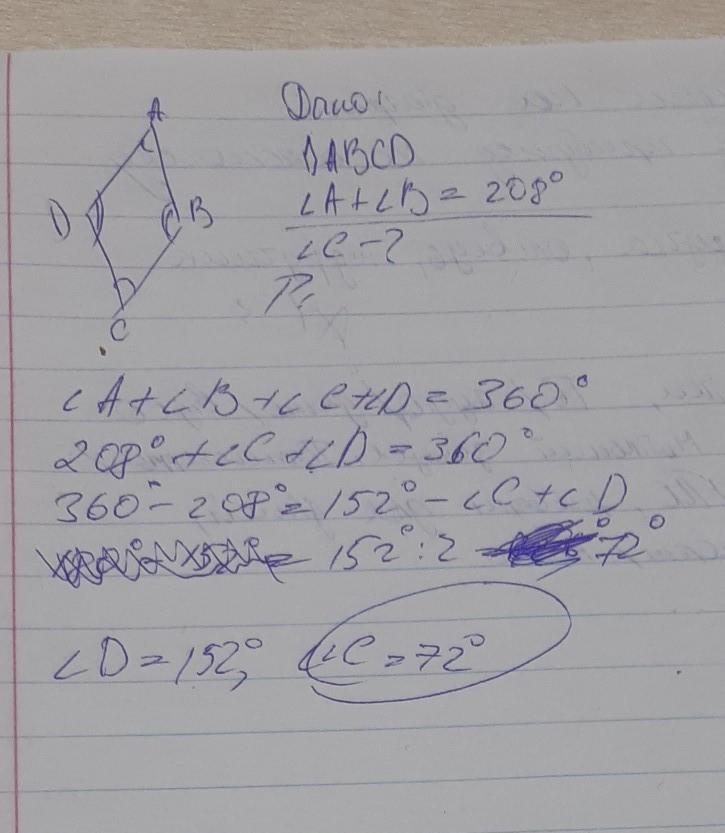 A
D
B
C
Дано:
ABCD
∠A+∠B = 208°
∠C - ?
Р:
∠A+∠B+∠C+∠D = 360°
208°+∠C+∠D = 360°
360°- 208°= 152° - ∠C+∠D
= 152°:2 = 72°
∠D = 152°, ∠C = 72°